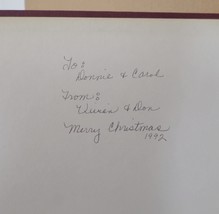 To:
Donnie & Carol
From:
& Don
Merry Christmas
1992